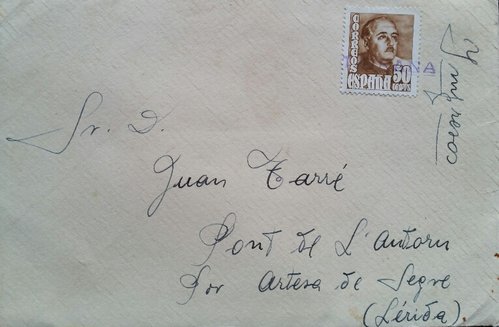 CORREOS
ESPAÑA
50
CTMOS
Sr. D.
Juan Tarré
Pont de L'Autorn
Por Artesa de Segre
(Lérida)